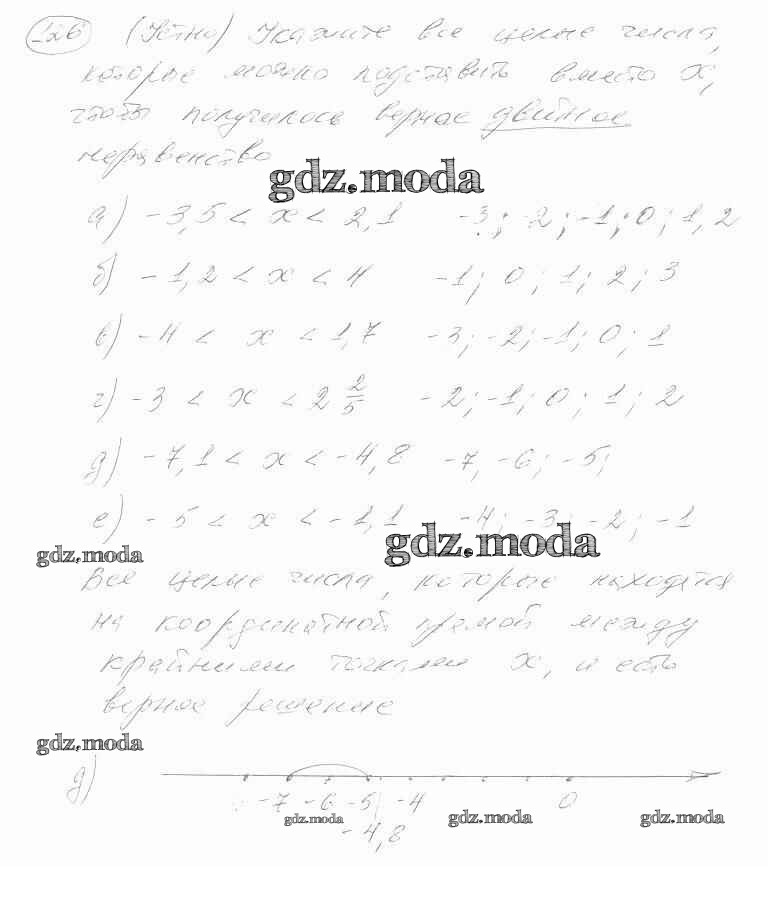 126 (Устно) Укажите все целые числа,
которые можно подставить вместо x,
чтобы получилось верное двойное
неравенство
gdz.moda
а) -3,5 < x < 2,1 -3; -2; -1; 0; 1, 2
б) -1,2 < x < 4 -1; 0; 1; 2; 3
в) -4 < x < 1,7 -3; -2; -1; 0; 1
г) -3 < x < 2 2/5 -2; -1; 0; 1; 2
д) -7,1 < x < -4,8 -7, -6; -5;
е) -5 < x < -1,1 -4; -3; -2; -1
gdz.moda
gdz.moda
Все целые числа, которые находятся
на координатной прямой между
крайними точками x, и есть
верное решение
gdz.moda
д)
-7 -6 -5 -4 0
-4,8
gdz.moda gdz.moda gdz.moda